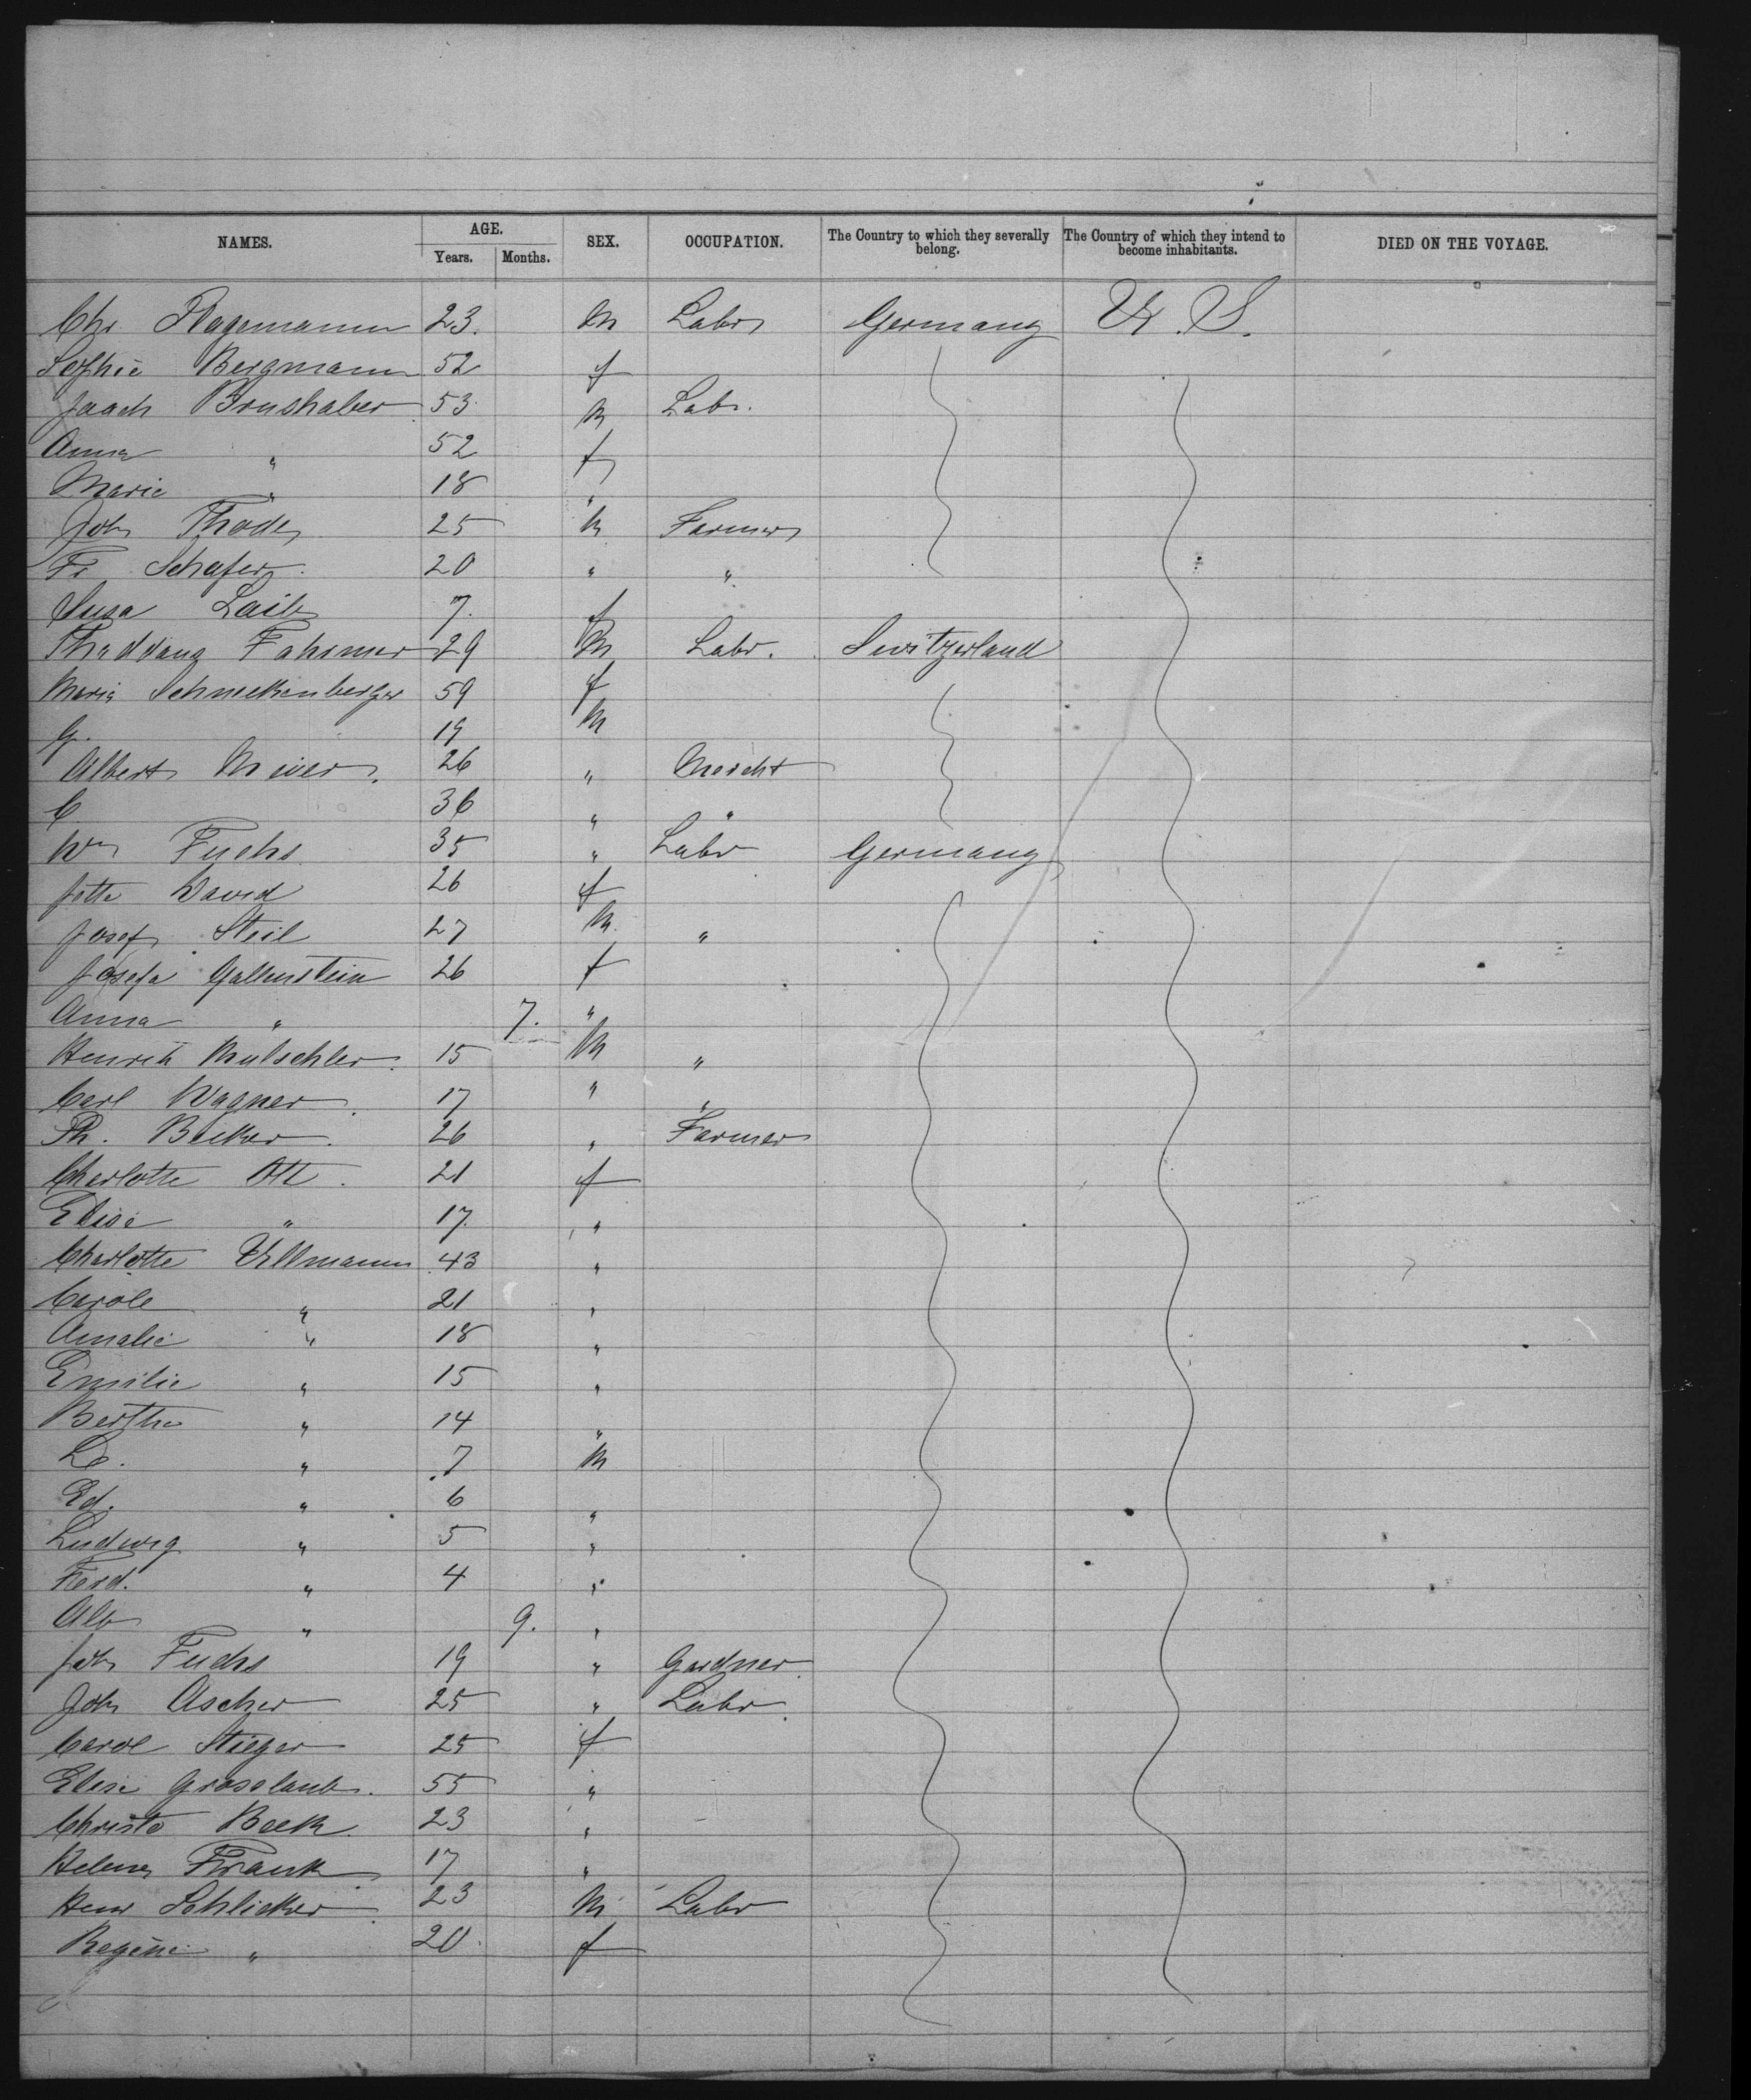 NAMES. AGE. SEX. OCCUPATION. The Country to which they severally belong. The Country of which they intend to become inhabitants. DIED ON THE VOYAGE.
Years. Months.
Chr. Hagemann 23. M Labr Germany U. S.
Sophie Bergmann 52 f
Joach Brushaber 53 M Labr.
Anna " 52 f
Marie " 18 "
Joh Thode 25 M Farmer
Fr Schafer 20 " "
Susa Laib 7. f
Fahrmer 29 M Labr. Switzerland
Maria Schneckenberger 59 f
G. 19 M
Albert Meier. 26 " Mercht
C 36 " "
Wm Fuchs 35 " Labr Germany
Jette David 26 f
Josef Steil 27 M "
Josefa Gallenstein 26 f
Anna " 7. "
Henrich Mutschler 15 M "
Carl Wagner 17 " "
Ph. Becker 26 " Farmer
Charlotte Ott. 21 f
Elise " 17. "
Charlotte Ullmann 43 "
Carole " 21 "
Amalie " 18 "
Emilie " 15 "
Bertha " 14 "
" 7 M
Ed. " 6 "
Ludwig " 5 "
Ferd. " 4 "
Alb " 9. "
Joh Fuchs 19 " Gardner
Joh Ascher 25 " Labr
Carol Stieger 25 f
Elise Grosslaub. 55 "
Christe Beck 23 "
Helene Frank 17 "
Henr Schlicker 23 M Labr
Regine " 20. f